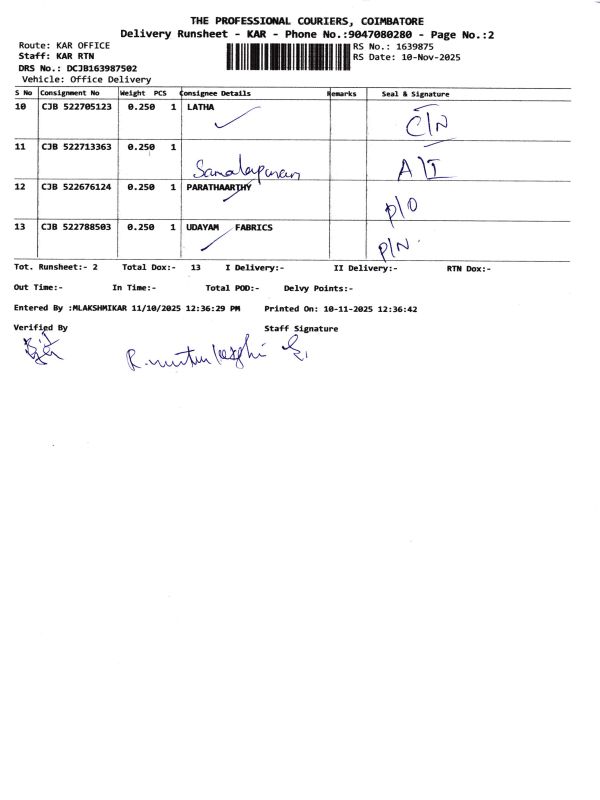 THE PROFESSIONAL COURIERS, COIMBATORE
Delivery Runsheet - KAR - Phone No.:9047080280 - Page No.:2
Route: KAR OFFICE RS No.: 1639875
Staff: KAR RTN RS Date: 10-Nov-2025
DRS No.: DCJB163987502
Vehicle: Office Delivery
S No Consignment No Weight PCS Consignee Details Remarks Seal & Signature
10 CJB 522705123 0.250 1 LATHA C\N
11 CJB 522713363 0.250 1 A\I
12 CJB 522676124 0.250 1 PARATHAARTHY P\O
13 CJB 522788503 0.250 1 UDAYAM FABRICS P\N
Tot. Runsheet:- 2 Total Dox:- 13 I Delivery:- II Delivery:- RTN Dox:-
Out Time:- In Time:- Total POD:- Delvy Points:-
Entered By :MLAKSHMIKAR 11/10/2025 12:36:29 PM Printed On: 10-11-2025 12:36:42
Verified By Staff Signature